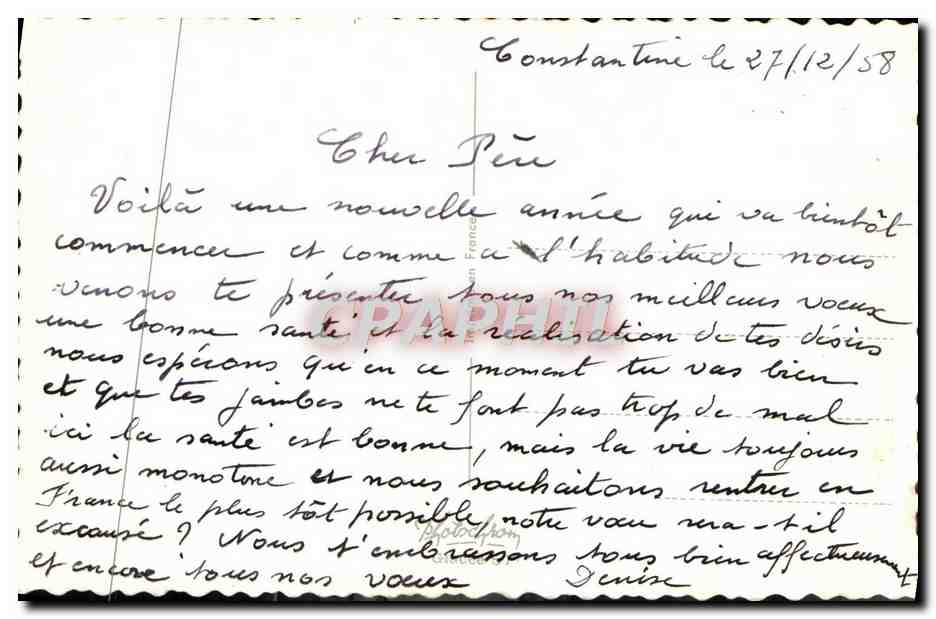 Constantine le 27/12/58
Cher Père
Voilà une nouvelle année qui va bientôt
commencer et comme a l'habitude nous
venons te présenter tous nos meilleurs voeux
une bonne santé et la réalisation de tes désirs
nous espérons qu'en ce moment tu vas bien
et que tes jambes ne te font pas trop de mal
ici la santé est bonne, mais la vie toujours
aussi monotone et nous souhaitons rentrer en
France le plus tôt possible, notre voeu sera-t-il
exausé ? Nous t'embrassons tous bien affectueusement
et encore tous nos voeux Denise
CPAPHIL
en France
photochrom